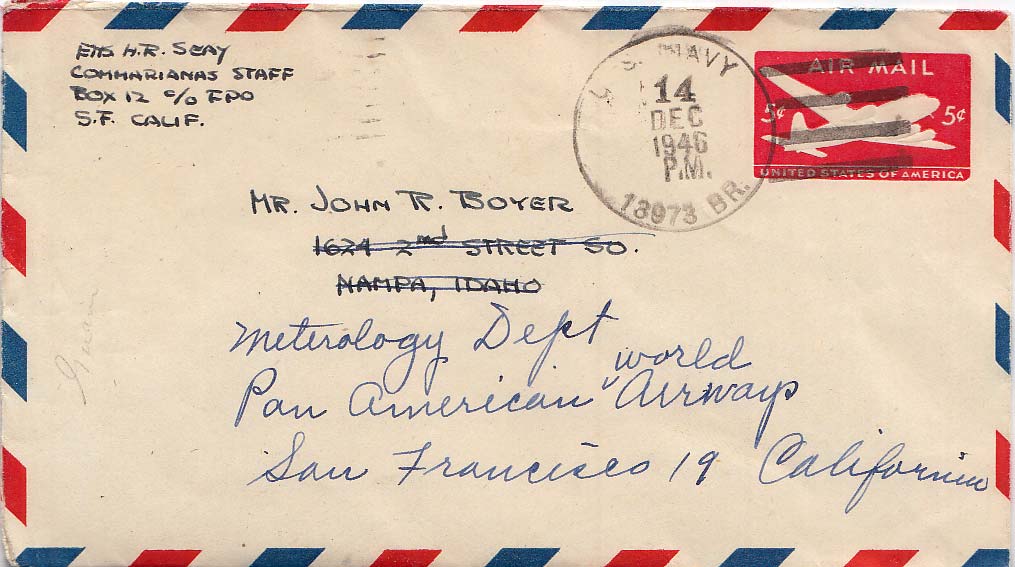 ENS H.R. SEAY
COMMARIANAS STAFF
BOX 12 c/o FPO
S.F. CALIF.
U.S. NAVY
14
DEC
1946
P.M.
13973 BR.
AIR MAIL
5¢ 5¢
UNITED STATES OF AMERICA
MR. JOHN R. BOYER
1624 2nd STREET SO.
NAMPA, IDAHO
Meterology Dept
Pan American world Airways
San Francisco 19 California
Guam